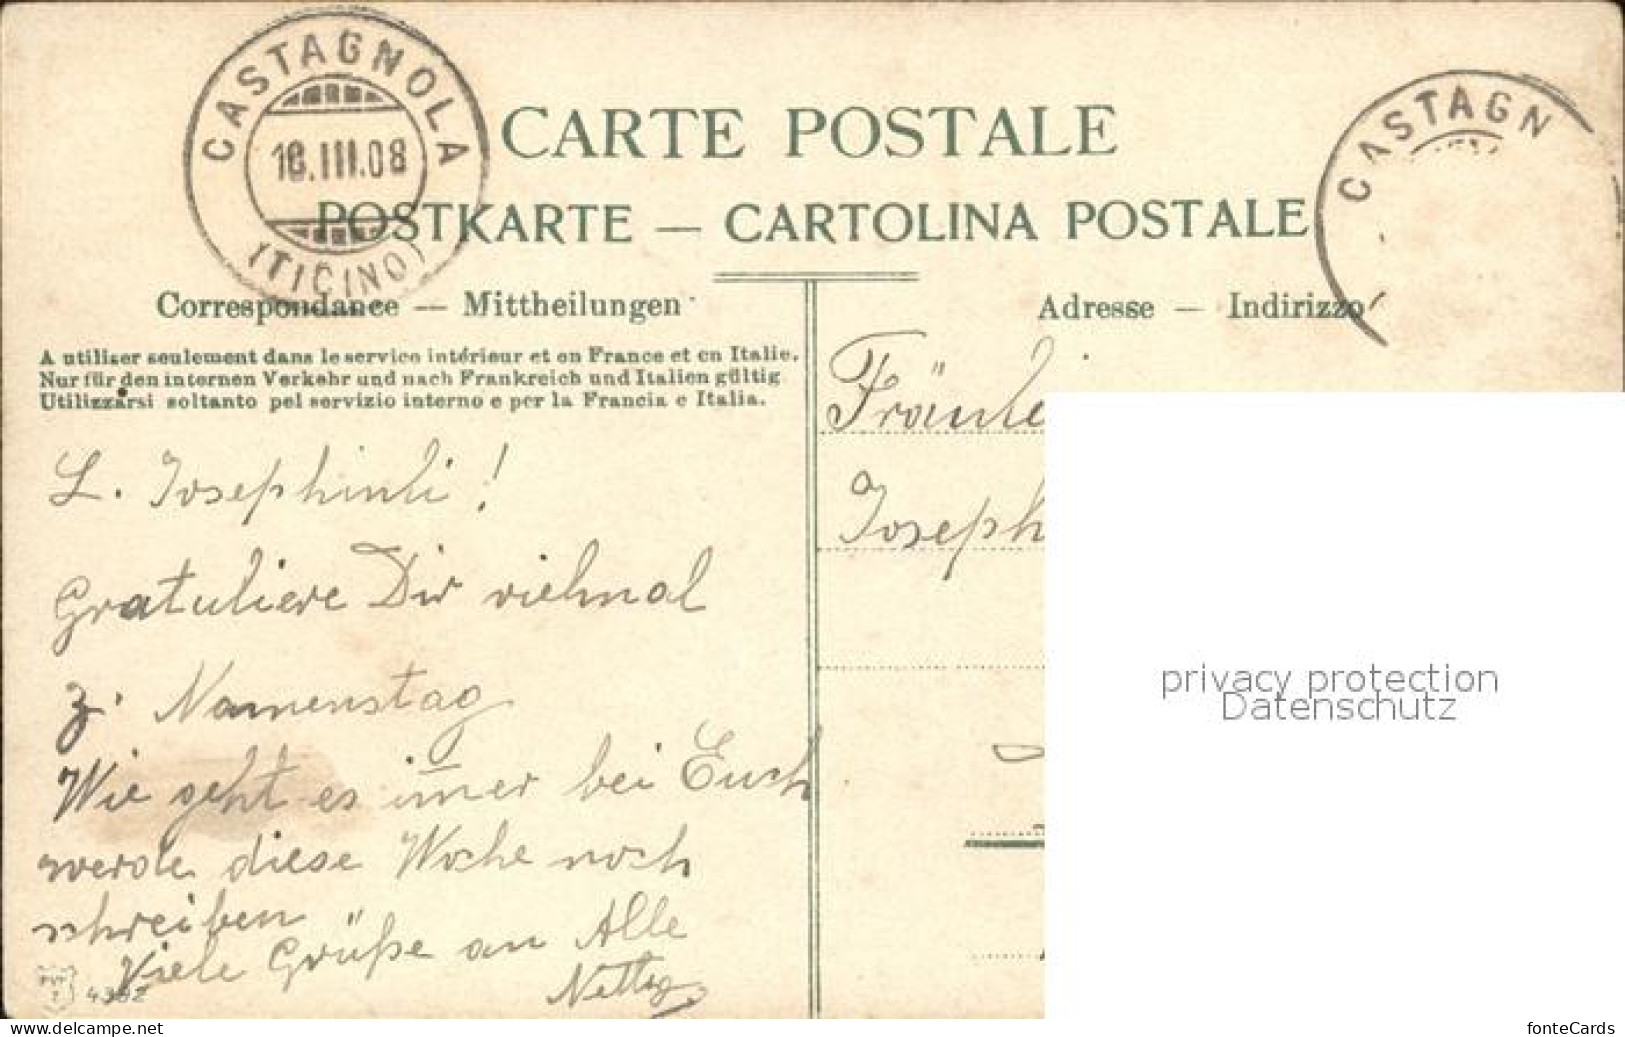 CASTAGNOLA
18.III.08
(TICINO)
CASTAGN
CARTE POSTALE
POSTKARTE — CARTOLINA POSTALE
Correspondance — Mittheilungen
Adresse — Indirizzo
A utiliser seulement dans le service intérieur et en France et en Italie.
Nur für den internen Verkehr und nach Frankreich und Italien gültig
Utilizzarsi soltanto pel servizio interno e per la Francia e Italia.
L. Josephinli!
Gratuliere Dir vielmal
z. Namenstag
Wie geht es im̄er bei Euch
werde diese Woche noch
schreiben
Viele Grüße an Alle
Fräule
Joseph
privacy protection
Datenschutz
4392
www.delcampe.net
fonteCards